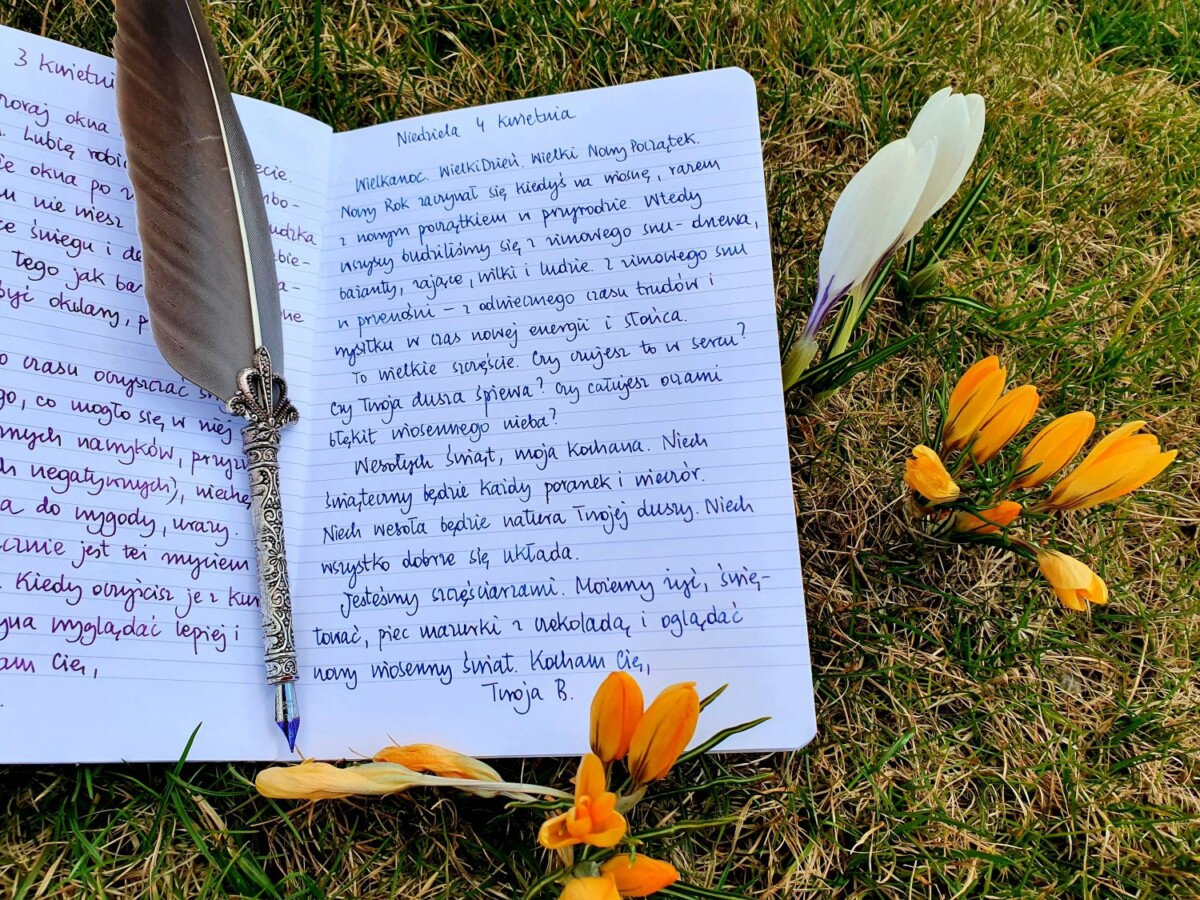 3 kwietni
okna
Lubię robi
ecie.
ie okna po
mbo-
nie niesz
udzka
ce śniegu i de
ebie-
tego jak ba
a-
być okulary, p
ne
o czasu oczyszczać s
go, co mogło się w niej
rnych nawyków, przyzw
h negatywnych), niechę
a do wygody, urazy.
cznie jest też myciem
. Kiedy oczyścisz je z kur
yna wyglądać lepiej i
am Cię,
Niedziela 4 kwietnia
Wielkanoc. Wielki Dzień. Wielki Nowy Początek.
Nowy Rok zaczynał się kiedyś na wiosnę, razem
z nowym początkiem w przyrodzie. Wtedy
wszyscy budziliśmy się z zimowego snu – drzewa,
bażanty, zające, wilki i ludzie. Z zimowego snu
w przenośni – z odwiecznego czasu trudów i
wysiłku w czas nowej energii i słońca.
To wielkie szczęście. Czy czujesz to w sercu?
Czy Twoja dusza śpiewa? Czy całujesz oczami
błękit wiosennego nieba?
Wesołych świąt, moja Kochana. Niech
świąteczny będzie każdy poranek i wieczór.
Niech wesoła będzie natura Twojej duszy. Niech
wszystko dobrze się układa.
Jesteśmy szczęściarzami. Możemy żyć, świę-
tować, piec mazurki z czekoladą i oglądać
nowy wiosenny świat. Kocham Cię,
Twoja B.